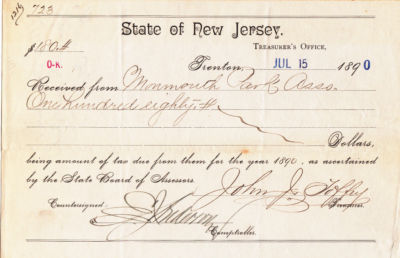 1218 723
State of New Jersey.
$180.#
TREASURER'S OFFICE,
O-K.
Trenton, JUL 15 1890
Received from Monmouth Park Asso.
One hundred eighty #
Dollars,
being amount of tax due from them for the year 1890, as ascertained
by the State Board of Assessors.
John J. Toffey
Countersigned Treasurer.
Anderson
Comptroller.